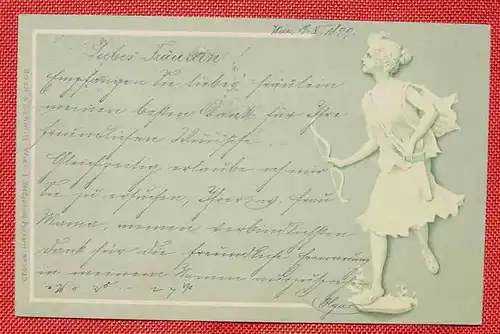 Wien, 1899.
Liebes Fräulein!
Empfangen Sie liebes Fräulein
meinen besten Dank für Ihre
freundlichen Wünsche.
Gleichzeitig erlaube ich mir
Sie zu ersuchen, Ihrer Frau
Mama, meinen verbindlichsten
Dank für die freundliche
in meinem Namen
Olga